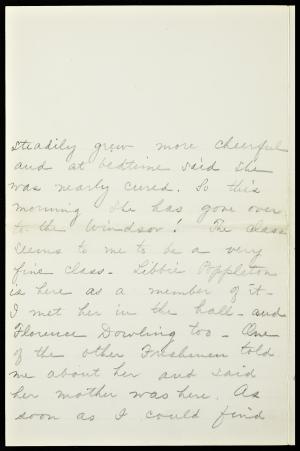 steadily grew more cheerful
and at bedtime said she
was nearly cured. So this
morning she has gone over
to the Windsor! The class
seems to me to be a very
fine class - Libbie Poppleton
is here as a member of it -
I met her in the hall - and
Florence Dowling too - One
of the other Freshmen told
me about her and said
her mother was here. As
soon as I could find